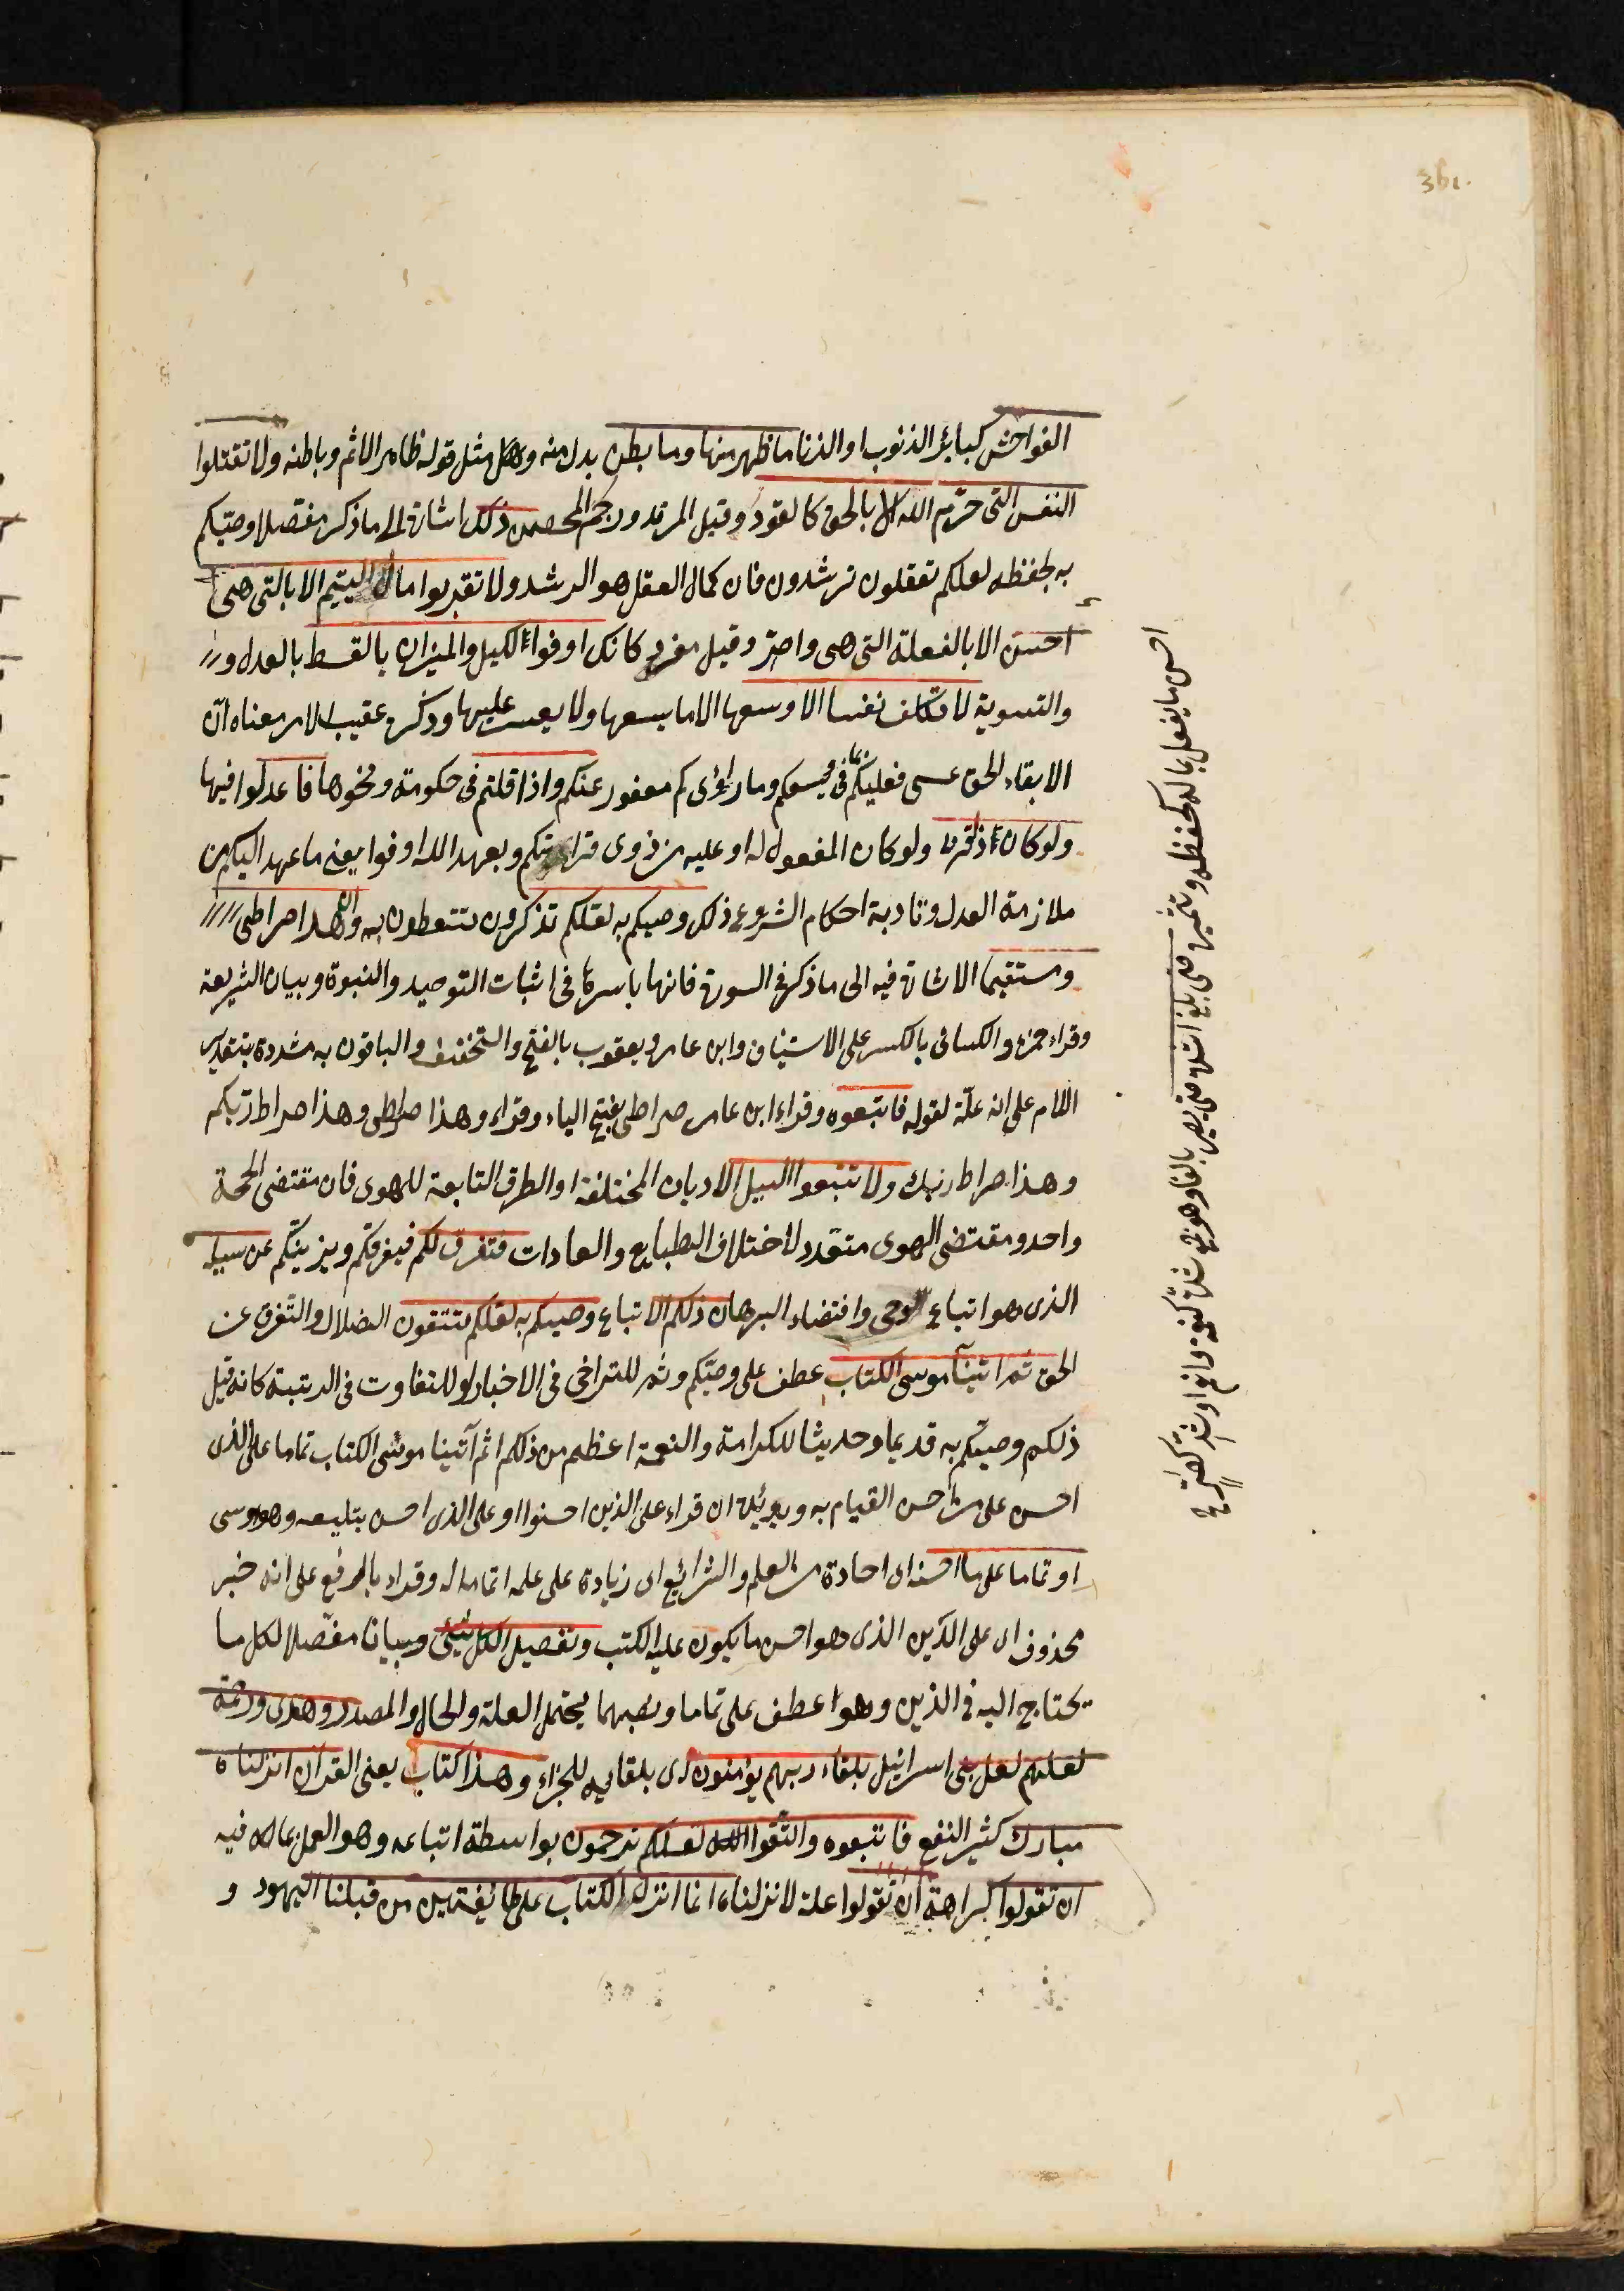 361.
الفواحش كبائر الذنوب او الزنا ما ظهر منها وما بطن بدل منه وهل مثل قوله ظاهر الاثم وباطنه ولا تقتلوا
النفس التى حرّم الله الا بالحق كالقود وقتل المرتد ورجم المحصن ذلكم اشارة الى ما ذكر مفصلا وصّيكم
به بحفظه لعلكم تعقلون ترشدون فان كمال العقل هو الرشد ولا تقربوا مال اليتيم الا بالتى هى
احسن الا بالفعلة التى هى وقيل مفرد كانك اوفوا الكيل والميزان بالقسط بالعدل و
والتسوية لا نكلف نفسا الا وسعها الا ما يسعها ولا يعسر عليها وذكره عقيب الامر معناه انّ
الايفاء الحق عسى فعليكم بما فى وسعكم وما راؤى كم معفور عنكم واذا قلتم فى حكومة ونحوها فاعدلوا فيها
ولو كان ذا قربى ولو كان المفعول له او عليه من ذوى قرابتكم وبعهد الله اوفوا يعنى ما عهد اليكم من
ملازمة العدل وتادية احكام الشروع ذلكم وصيكم به لعلكم تذكرون تتعظون به وان هذا صراطى
ومستقيما الاشارة فيه الى ما ذكر فى السورة فانها باسرها فى اثبات التوحيد والنبوة وبيان الشريعة
وقراء حمزة والكسائى بالكسر على الاستيناف وابن عامر ويعقوب بالفتح والتخفيف والباقون به مشددة بتقدير
اللام على انه علّة لقوله فاتبعوه وقراء ابن عامر صراطى بفتح الياء وقراء وهذا صراطى وهذا صراط ربّكم
وهذا صراط ربك ولا تتبعوا السبل الاديان المختلفة او الطرق التابعة للهوى فان مقتضى الحجة
واحد ومقتضى الهوى متعدد لاختلاف الطبايع والعادات فتفرق لكم فيفرقكم ويزيتكم عن سبيله
الذى هو اتباع الوحى واقتضاء البرهان ذلكم الاتباع وصيكم به لعلكم تتقون الضلال والتفرق عن
الحق ثم اتينا موسى الكتاب عطف على وصيّكم وثم للتراخى فى الاخبار او للتفاوت فى الرتبة كانه قيل
ذلكم وصيّكم به قديما وحديثا للكرامة والنعمة اعظم من ذلكم اثم آتينا موسى الكتاب تماما على الذى
احسن على من احسن القيام به ويؤيّده ان قراء على الذين احسنوا او على الذى احسن بتليعه وهو موسى
او تماما على ما احسنه اى اجادة من العلم والشرائع اى زيادة على علمه اتماما له وقراء بالرفع على انه خبر
محذوف اى على الدّين الذى هو احسن ما يكون عليه الكتب وتفصيلا لكل شئ وبيانا مفصّلا لكل ما
يحتاج اليه فى الذين وهوا عطف على تماما ونصبهما يحتمل العلة والحال والمصدر وهدى ورحمة
لعلهم لعل بنى اسرائيل بلقاء ربهم يؤمنون اى بلقايه للجزاء وهذا كتاب يعنى القرآن انزلناه
مبارك كثير النفع فاتبعوه واتقوا الله لعلكم ترحمون بواسطة اتباعه وهو العمل بما فيه
ان تقولوا كراهة ان تقولوا علة لانزلناه انما انزل الكتاب على طائفتين من قبلنا اليهود و
احسن ما يفعل بماله كحفظه وتثميره حتى يبلغ اشده حتى يصير بالغا وهو جمع شدة كنعمة وانعم او شد كصر